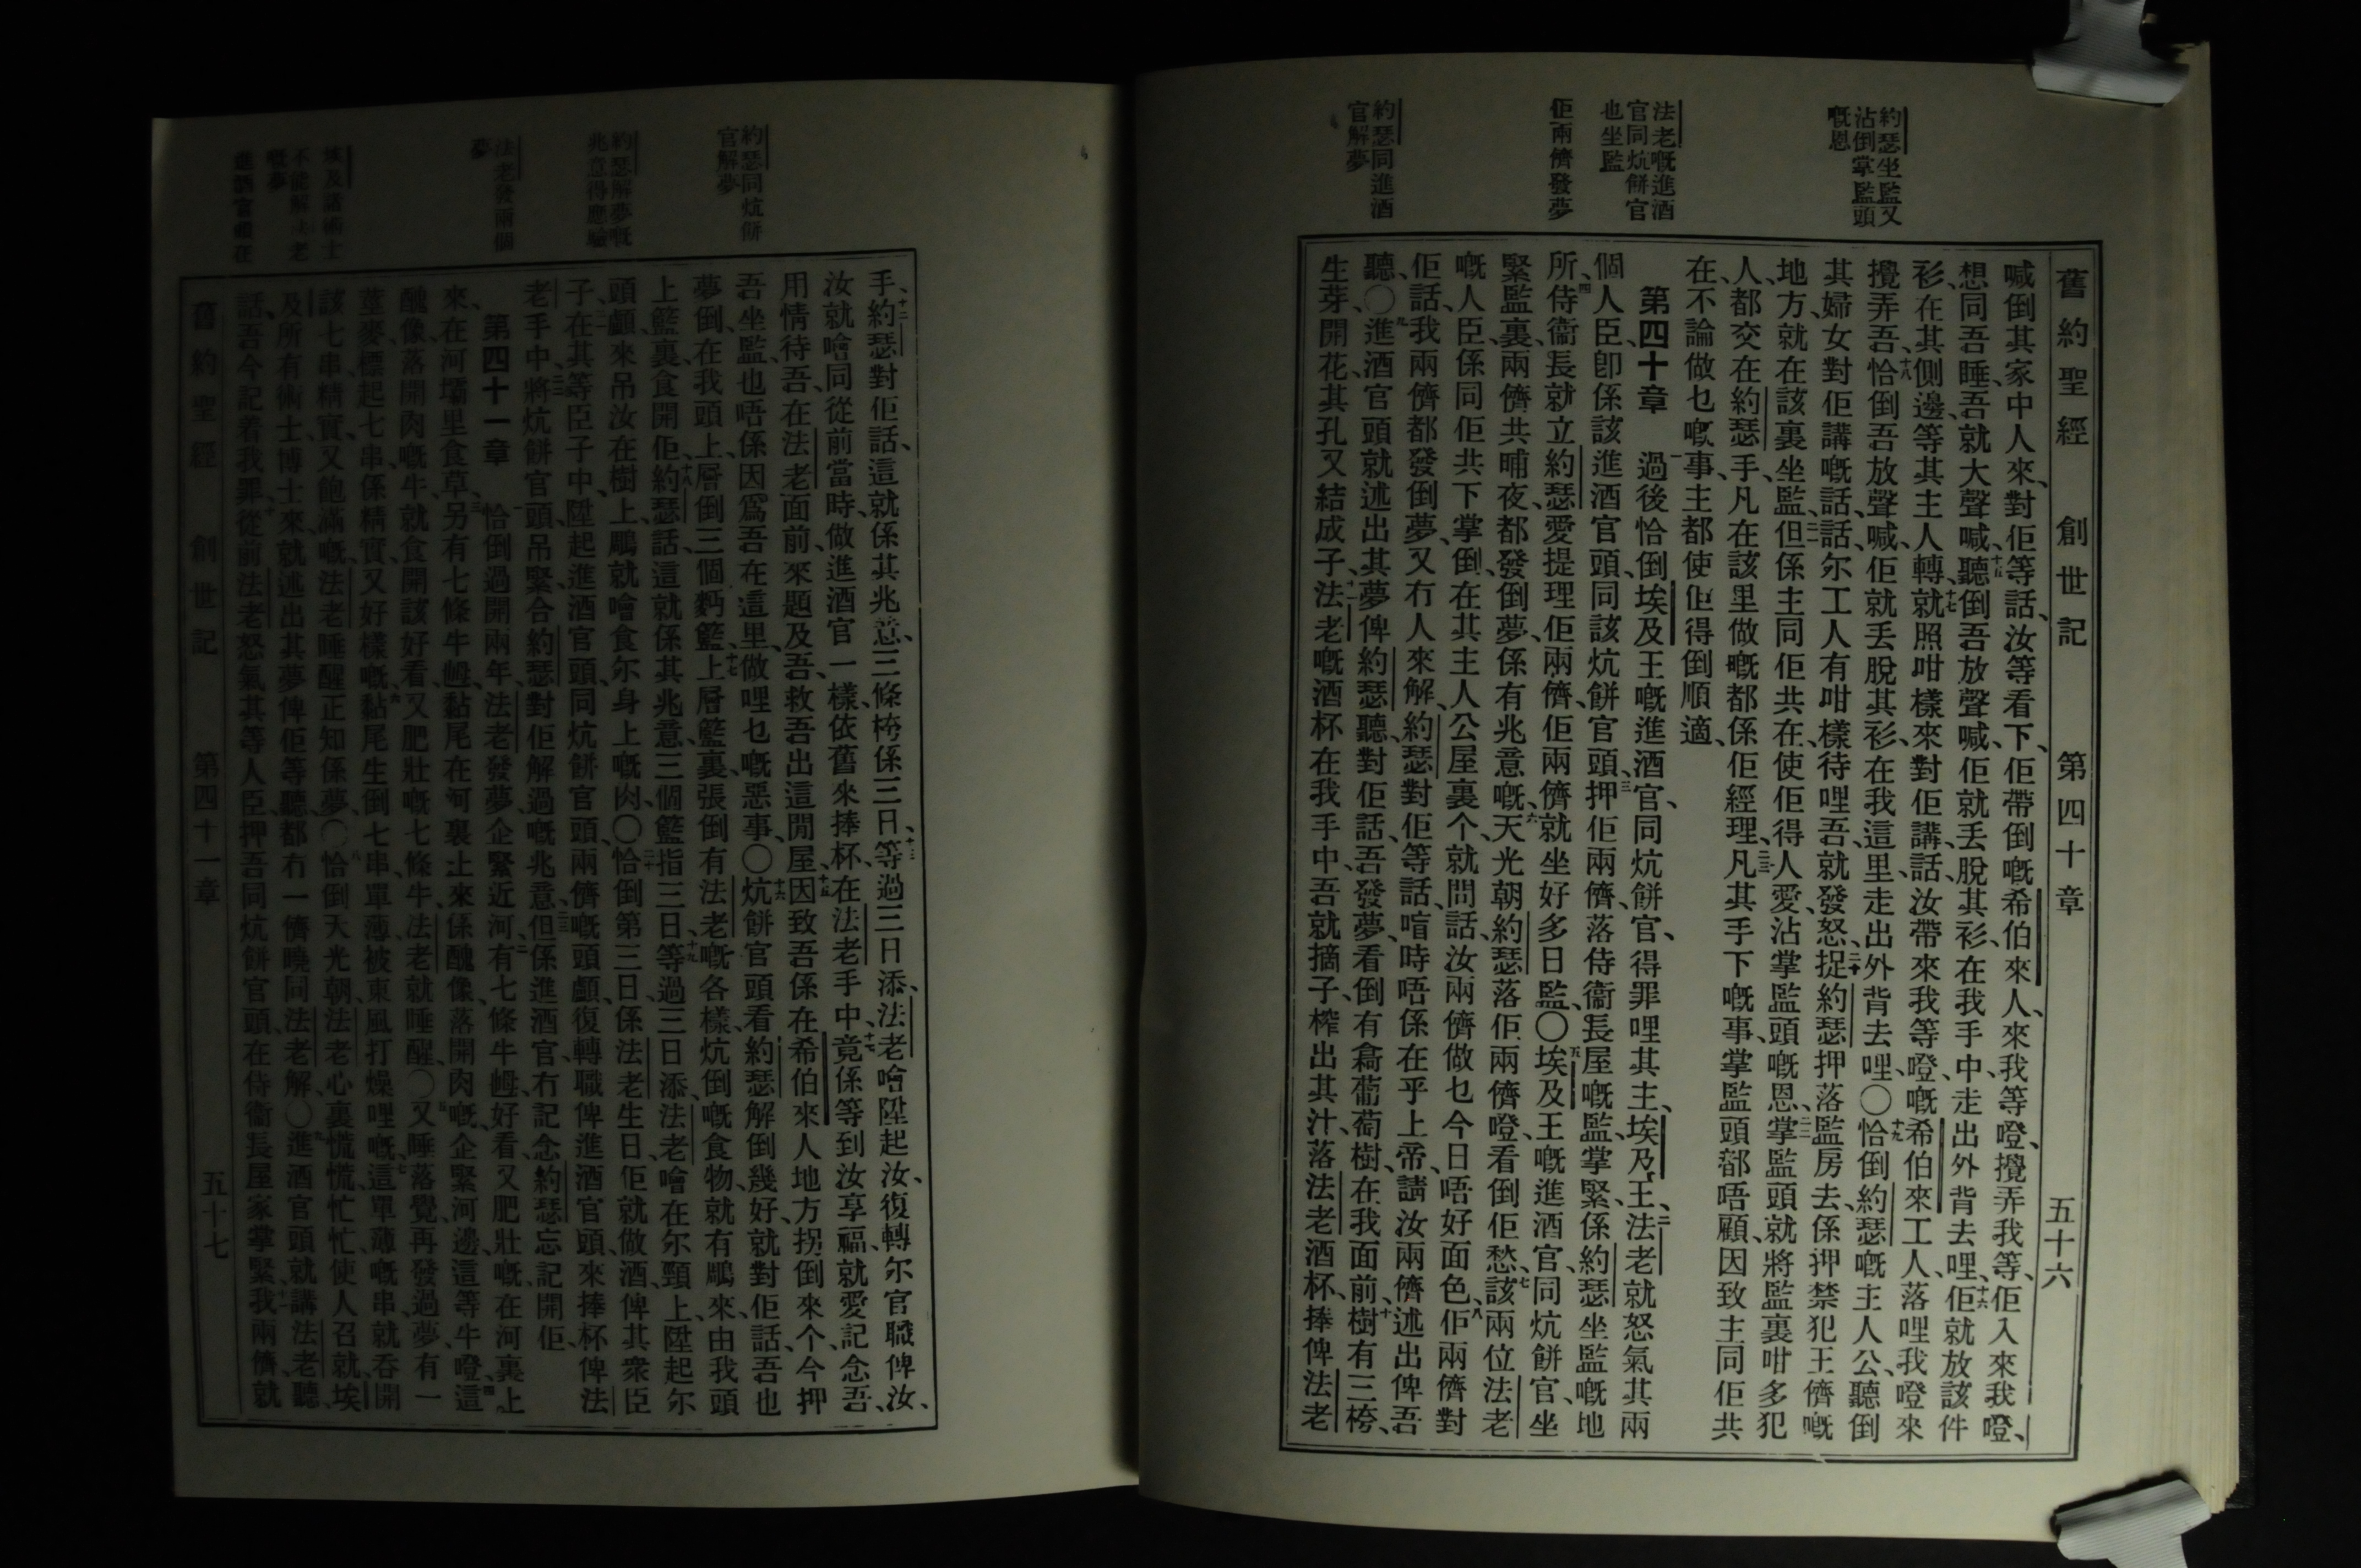 舊約聖經 創世記 第四十章 五十六
約瑟坐監又
沾倒掌監頭
嘅恩
法老嘅進酒
官同炕餅官
也坐監
佢兩儕發夢
約瑟同進酒
官解夢
喊倒其家中人來、對佢等話、汝等看下、佢帶倒嘅希伯來人、來我等噔、攪弄我等、佢入來我噔、
想同吾睡、吾就大聲喊、十五聽倒吾放聲喊、佢就丢脫其衫、在我手中、走出外背去哩、十六佢就放該件
衫、在其側邊、等其主人轉、十七就照咁樣來對佢講、話、汝帶來我等噔、嘅希伯來工人、落哩我噔來
攪弄吾、十八恰倒吾放聲喊、佢就丢脫其衫、在我這里、走出外背去哩、〇十九恰倒約瑟嘅主人公、聽倒
其婦女對佢講嘅話、話尔工人有咁樣待哩吾、就發怒、二十捉約瑟押落監房去、係押禁犯王儕嘅
地方、就在該裏坐監、二一但係主同佢共在、使佢得人愛、沾掌監頭嘅恩、二二掌監頭就將監裏咁多犯
人、都交在約瑟手、凡在該里做嘅、都係佢經理、二三凡其手下嘅事、掌監頭都唔顧、因致主同佢共
在、不論做乜嘅事、主都使佢得倒順適、
第四十章 一過後恰倒埃及王嘅進酒官、同炕餅官、得罪哩其主、埃及王、二法老就怒氣其兩
個人臣、卽係該進酒官頭、同該炕餅官頭、三押佢兩儕、落侍衞長屋嘅監、掌緊、係約瑟坐監嘅地
所、四侍衞長就立約瑟、愛提理佢兩儕、佢兩儕就坐好多日監、〇五埃及王嘅進酒官、同炕餅官、坐
緊監裏、兩儕共晡夜、都發倒夢、係有兆意嘅、六天光朝、約瑟落佢兩儕噔、看倒佢愁、七該兩位法老
嘅人臣、係同佢共下掌倒、在其主人公屋裏个、就問話、汝兩儕做乜今日唔好面色、八佢兩儕對
佢話、我兩儕都發倒夢、又冇人來解、約瑟對佢等話、喑時唔係在乎上帝、請汝兩儕、述出俾吾
聽、〇九進酒官頭就述出其夢俾約瑟聽、對佢話、吾發夢、看倒有㝹葡萄樹、在我面前、十樹有三桍、
生芽、開花、其孔又結成子、十一法老嘅酒杯在我手中、吾就摘子、榨出其汁、落法老酒杯、捧俾法老
約瑟同炕餅
官解夢
約瑟解夢嘅
兆意得應驗
法老發兩個
夢
手、十二約瑟對佢話、這就係其兆意、三條桍係三日、十三等過三日添、法老噲陞起汝、復轉尔官職俾汝、
汝就噲同從前當時、做進酒官一樣、依舊來捧杯、在法老手中、十四竟係等到汝享福、就愛記念吾、
用情待吾、在法老面前、來題及吾、救吾出這閒屋、十五因致吾係在希伯來人地方、拐倒來个、今押
吾坐監、也唔係因爲吾在這里、做哩乜嘅惡事、〇十六炕餅官頭看約瑟解倒幾好、就對佢話、吾也
夢倒、在我頭上、層倒三個麪籃、十七上層籃裏、張倒有法老嘅各樣炕倒嘅食物、就有鵰來、由我頭
上籃裏食開佢、十八約瑟話、這就係其兆意、三個籃指三日、十九等過三日添、法老噲在尔頸上、陞起尔
頭顱、來吊汝在樹上、鵰就噲食尔身上嘅肉、〇二十恰倒第三日、係法老生日、佢就做酒、俾其衆臣
子、在其等臣子中、陞起進酒官頭、同炕餅官頭、兩儕嘅頭顱、二一復轉職俾進酒官頭、來捧杯俾法
老手中、二二將炕餅官頭吊緊、合約瑟對佢解過嘅兆意、二三但係進酒官、冇記念約瑟、忘記開佢、
第四十一章 一恰倒過開兩年、法老發夢、企緊近河、二有七條牛乸、好看、又肥壯嘅、在河裏上
來、在河壩里食草、三另有七條牛乸、黏尾在河裏上來、係醜像、落開肉嘅、企緊河邊、這等牛噔、四這
醜像、落開肉嘅牛、就食開該好看、又肥壯嘅七條牛、法老就睡醒、〇五又睡落覺、再發過夢、有一
莖麥、標起七串、係精實、又好樣嘅、六黏尾生倒七串、單薄、被東風打燥哩嘅、七這單薄嘅串、就呑開
該七串精實、又飽滿嘅、法老睡醒、正知係夢、〇八恰倒天光朝、法老心裏慌慌忙忙、使人召就埃
及所有術士、博士來、就述出其夢俾佢等聽、都冇一儕曉同法老解、〇九進酒官頭就講法老聽、
話、吾今記着我罪、十從前法老怒氣其等人臣、押吾同炕餅官頭、在侍衞長屋家掌緊、十一我兩儕、就
舊約聖經 創世記 第四十一章 五十七